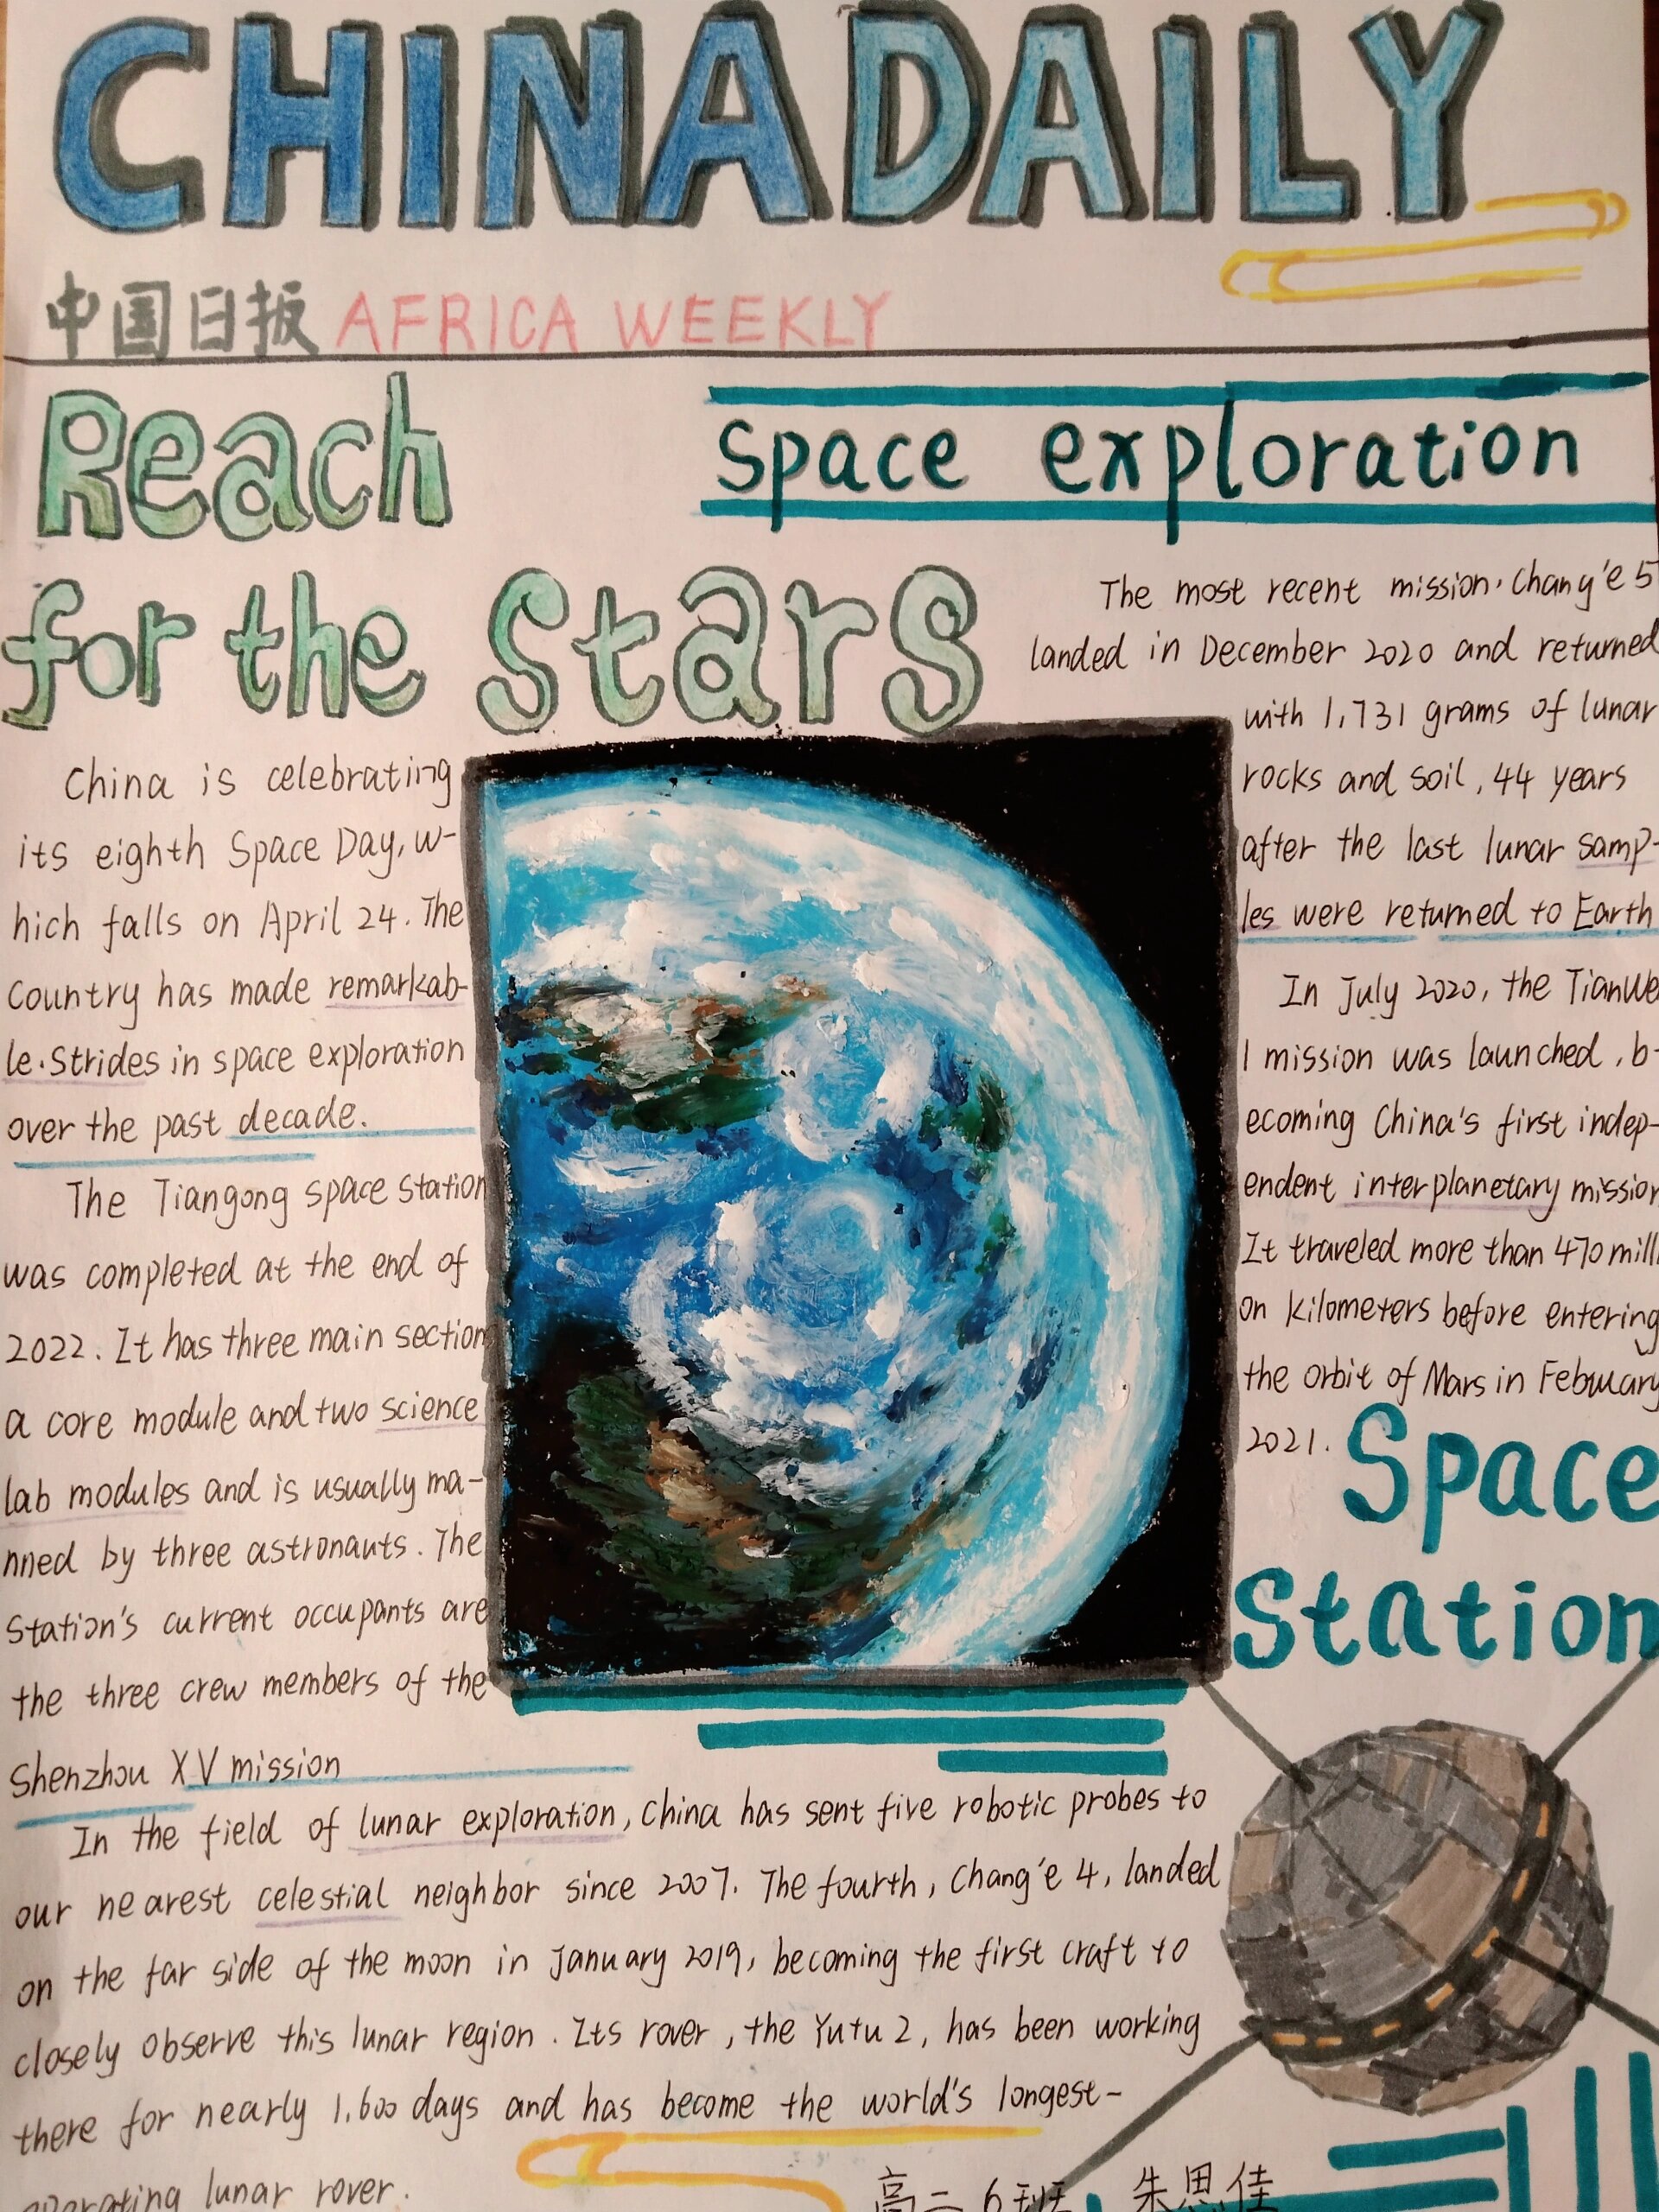 CHINADAILY
中国日报 AFRICA WEEKLY
Reach
for the Stars
China is celebrating
its eighth Space Day, w-
hich falls on April 24. The
Country has made remarkab-
le·Strides in space exploration
over the past decade.
The Tiangong space station
was completed at the end of
2022. It has three main section
a core module and two science
lab modules and is usually ma-
nned by three astronauts. The
Station's current occupants are
the three crew members of the
Shenzhou XV mission
In the field of lunar exploration, China has sent five robotic probes to
our nearest celestial neighbor since 2007. The fourth, Chang'e 4, landed
on the far side of the moon in January 2019, becoming the first craft to
closely observe this lunar region. Its rover, the Yutu 2, has been working
there for nearly 1,600 days and has become the world's longest-
operating lunar rover.
space exploration
The most recent mission, Chang'e 5
landed in December 2020 and returned
with 1,731 grams of lunar
rocks and soil, 44 years
after the last lunar samp-
les were returned to Earth
In July 2020, the TianWe
1 mission was launched, b-
ecoming China's first indep-
endent interplanetary mission
It traveled more than 470 milli
on kilometers before entering
the orbit of Mars in February
2021.
Space
Station
高二6班 朱思佳